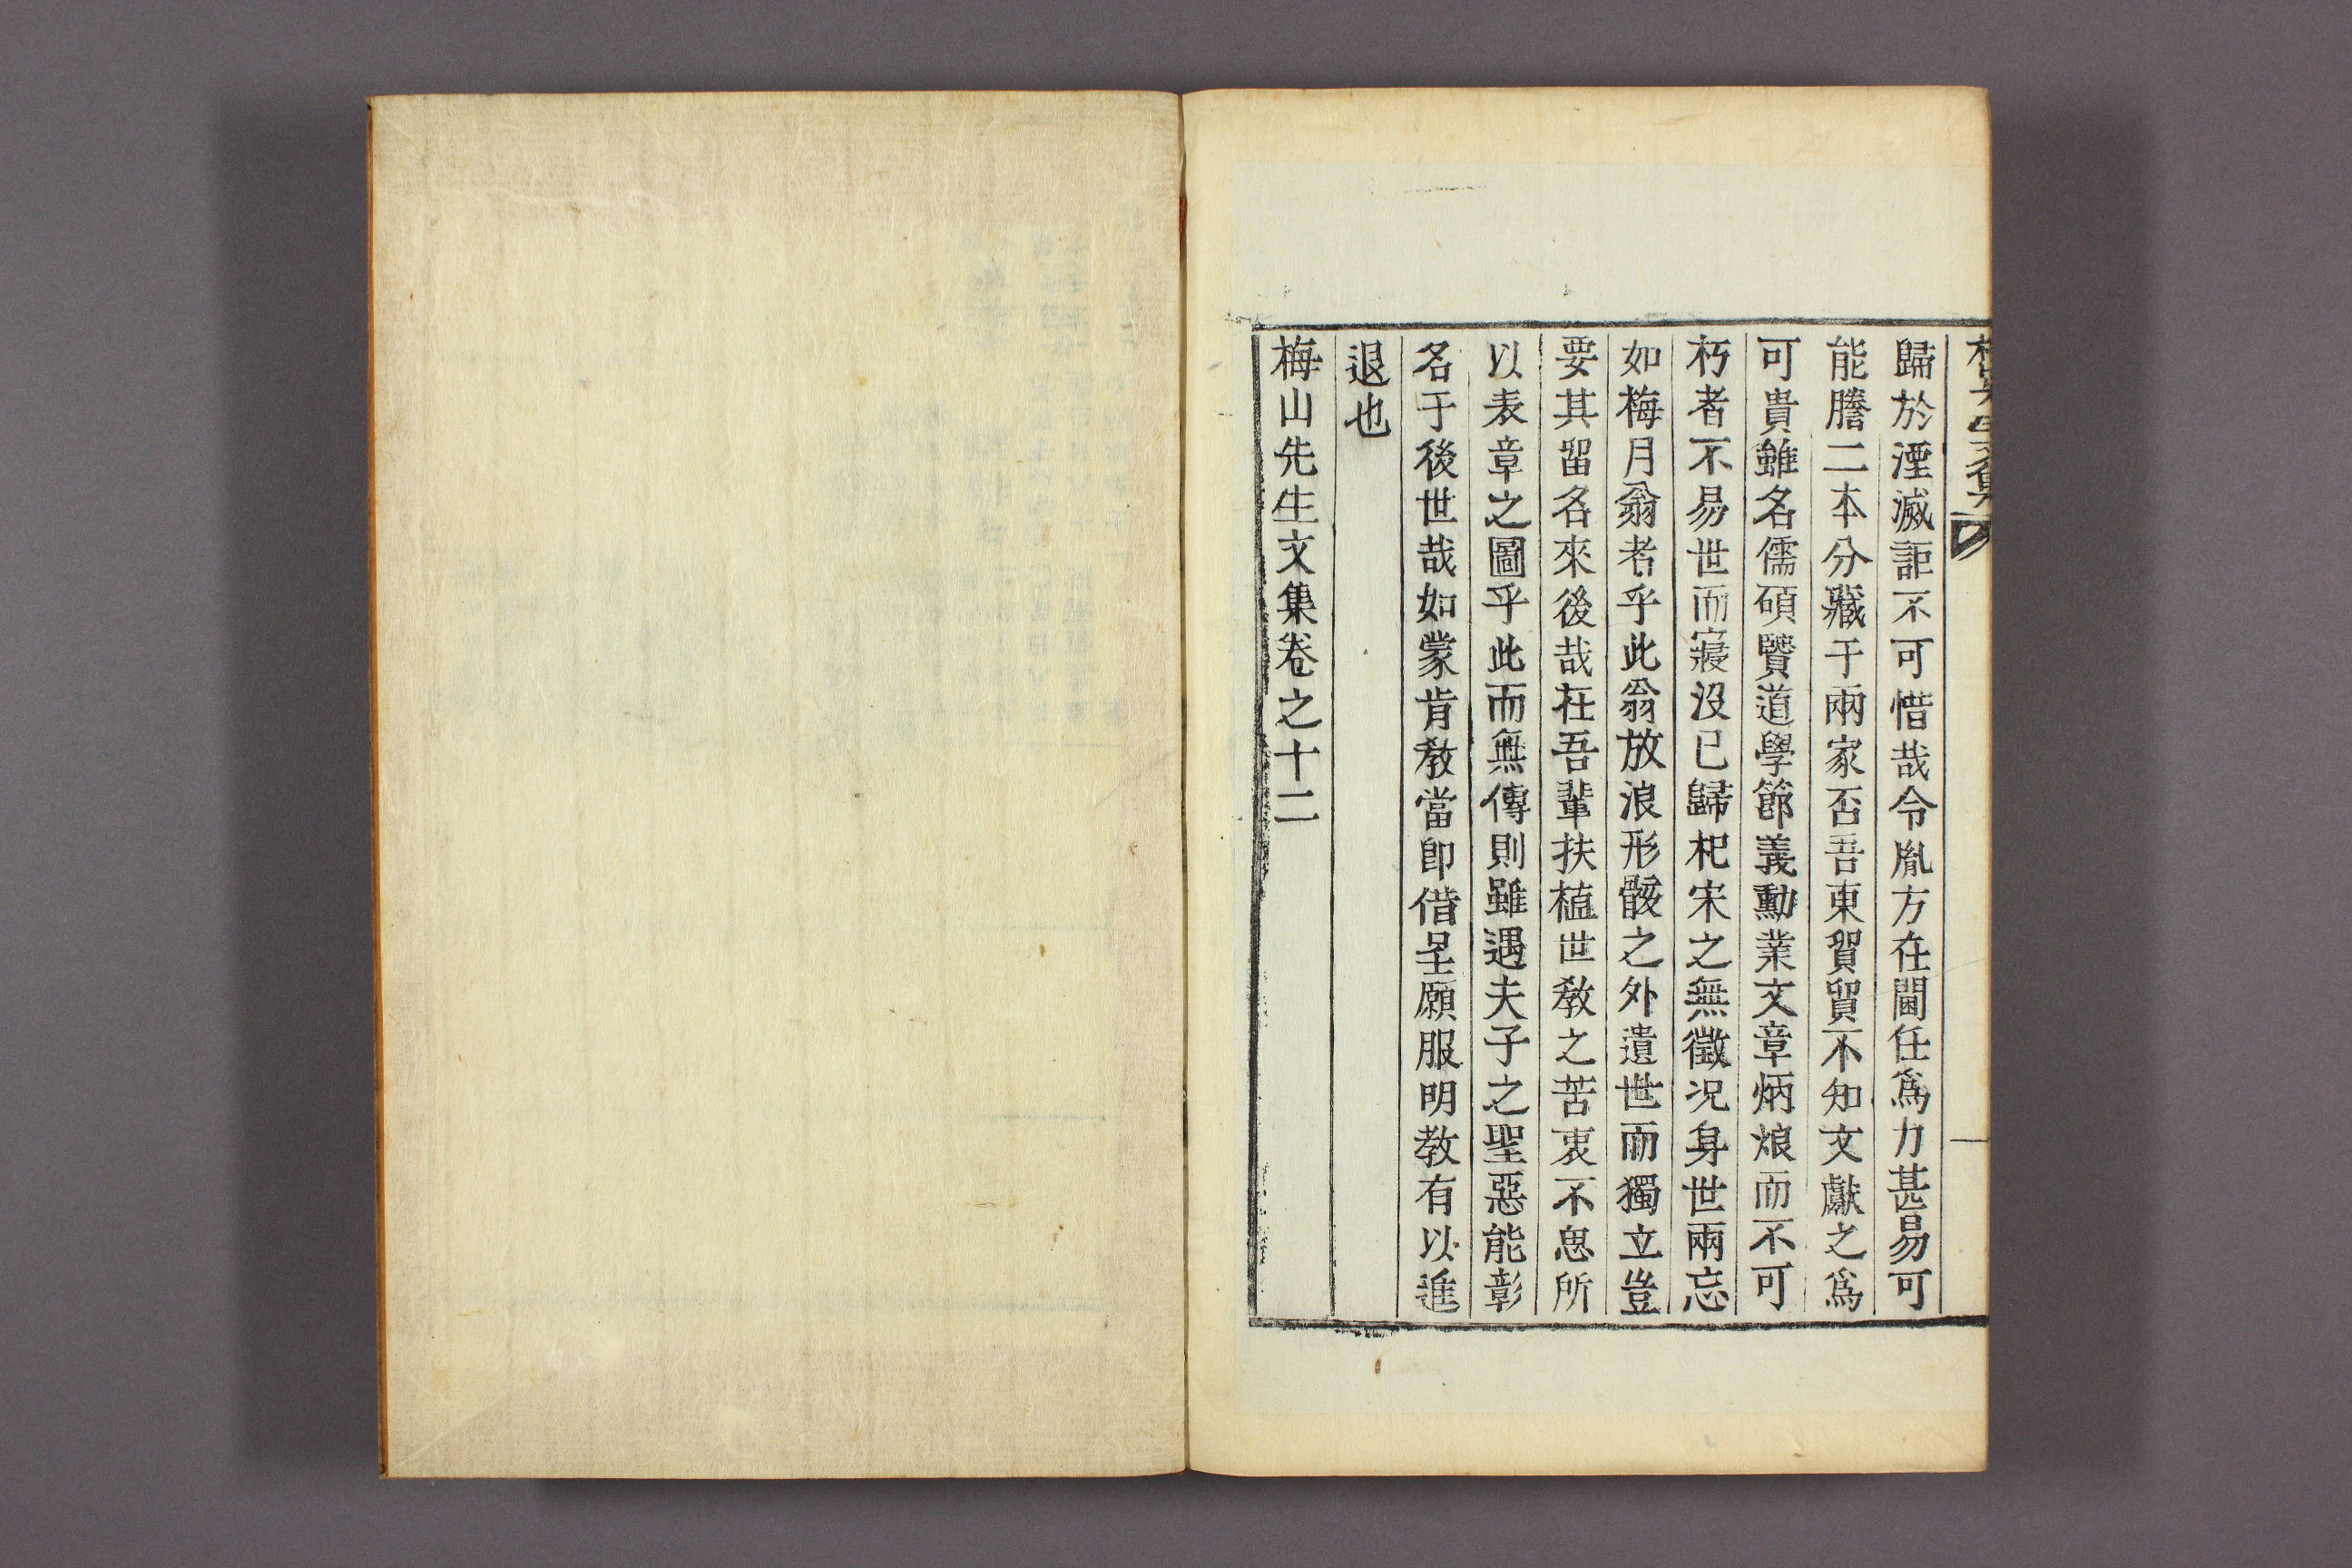 歸於湮滅詎不可惜哉令胤方在閫任爲力甚易可
能謄二本分藏于兩家否吾東貿貿不知文獻之爲
可貴雖名儒碩賢道學節義勳業文章炳烺而不可
朽者不易世而寢沒已歸杞宋之無徵况身世兩忘
如梅月翁者乎此翁放浪形骸之外遺世而獨立豈
要其留名來後哉在吾輩扶植世敎之苦衷不思所
以表章之圖乎此而無傳則雖遇夫子之聖惡能彰
名于後世哉如蒙肯敎當卽偕呈願服明敎有以進
退也
梅山先生文集卷之十二